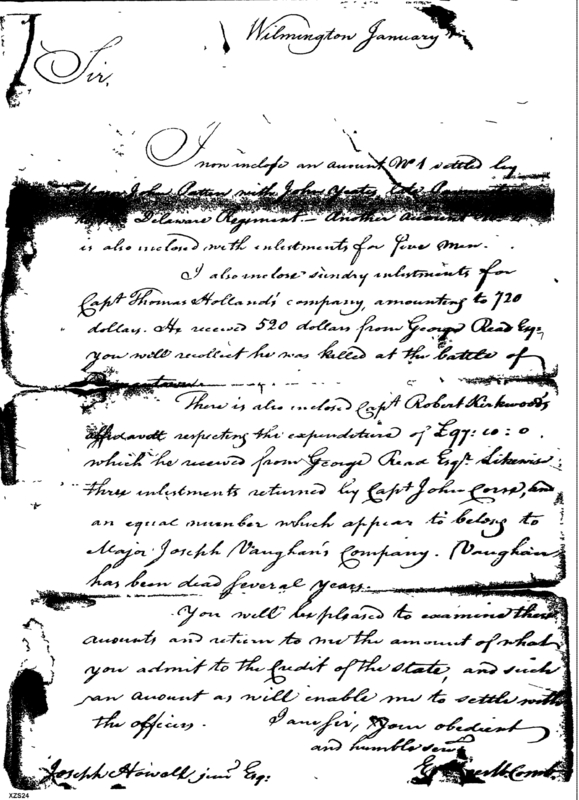 Wilmington January
Sir,
I now inclose an account No 1 settled by
Major John Patten with John Yeates, late Paymaster
Delaware Regiment. — Another account No 2
is also inclosed with inlistments for five men.
I also inclose sundry inlistments for
Capt Thomas Holland's company, amounting to 720
dollars. He received 520 dollars from George Read Esqr,
you will recollect he was killed at the battle of
There is also inclosed Capt Robert Kirkwood's
affidavit respecting the expenditure of £97: 10: 0.
which he received from George Read Esqr. Likewise
three inlistments returned by Capt John Corse, and
an equal number which appear to belong to
Major Joseph Vaughan's Company. Vaughan
has been dead several years.
You will be pleased to examine these
accounts and return to me the amount of what
you admit to the Credit of the State, and such
an account as will enable me to settle with
the officers. I am Sir, Your obedient
and humble servt
Joseph Howell junr Esqr.
XZS24